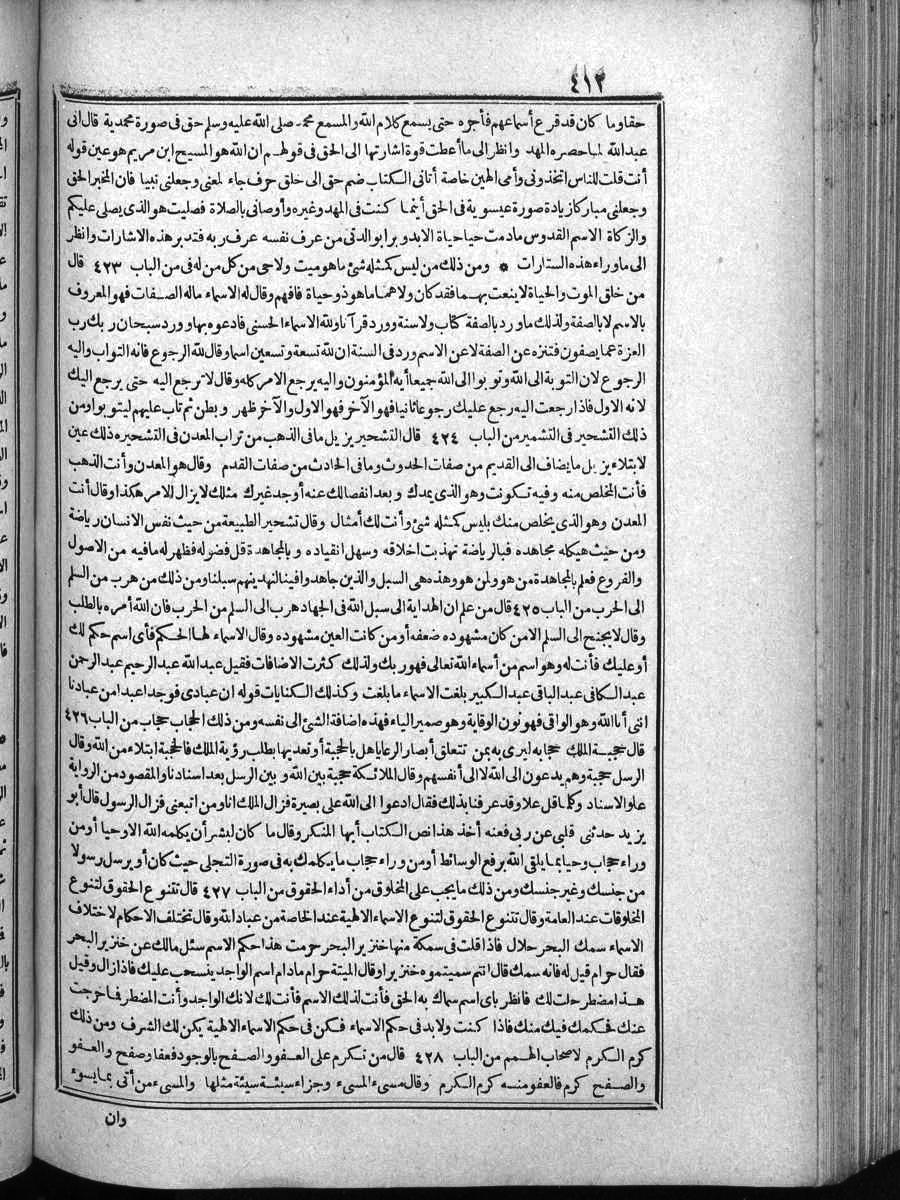 ٤١٢
حقا وما كان قد قرع أسماعهم فأجره حتى يسمع كلام الله والمسمع محمد صلى الله عليه وسلم حق فى صورة محمدية قال انى
عبد الله لما حصره المهد وانظر الى ما أعطت قوة اشارتها الى الحق فى قولهم ان الله هو المسيح ابن مريم هو عين قوله
أنت قلت للناس اتخذونى وأمى الهين خاصة أتانى الكتاب ضم حق الى خلق حرف جاء لمعنى وجعلنى نبيا فان المخبر الحق
وجعلنى مباركا زيادة صورة عيسوية فى الحق أينما كنت فى المهد وغيره وأوصانى بالصلاة فصليت هو الذى يصلى عليكم
والزكاة الاسم القدوس ما دمت حيا حياة الابد وبرا بوالدتى من عرف نفسه عرف ربه فتدبر هذه الاشارات وانظر
الى ما وراء هذه الستارات * ومن ذلك من ليس كمثله شئ ما هو ميت ولا حى من كل من له فى من الباب ٤٢٣ قال
من خلق الموت والحياة لا ينعت بهما فقد كان ولا هما ما هو ذو حياة فافهم وقال له الاسماء ماله الصفات فهو المعروف
بالاسم لا بالصفة ولذلك ما ورد بالصفة كتاب ولا سنة وورد قرآنا ولله الاسماء الحسنى فادعوه بها وورد سبحان ربك رب
العزة عما يصفون فتنزه عن الصفة لا عن الاسم ورد فى السنة ان لله تسعة وتسعين اسما وقال لله الرجوع فانه التواب واليه
الرجوع لان التوبة الى الله وتوبوا الى الله جميعا أيه المؤمنون واليه يرجع الامر كله وقال لا ترجع اليه حتى يرجع اليك
لانه الاول فاذا رجعت اليه رجع عليك رجوعا ثانيا فهو الآخر فهو الاول والآخر ظهر وبطن ثم تاب عليهم ليتوبوا ومن
ذلك التشحير فى التشمير من الباب ٤٢٤ قال التشحير يزيل ما فى الذهب من تراب المعدن فى التشحيره ذلك عين
لابتلاء يزيل ما يضاف الى القديم من صفات الحدوث وما فى الحادث من صفات القدم وقال هو المعدن وأنت الذهب
فأنت المخلص منه وفيه تكونت وهو الذى يمدك وبعد انفصالك عنه أوجد غيرك مثلك لا يزال الامر هكذا وقال أنت
المعدن وهو الذى يخلص منك بليس كمثله شئ وأنت لك أمثال وقال تشحير الطبيعة من حيث نفس الانسان رياضة
ومن حيث هيكله مجاهده فبالرياضة تهذبت اخلاقه وسهل انقياده وبالمجاهدة قل فضوله فظهر له ما فيه من الاصول
والفروع فعلم بالمجاهدة من هو ولمن هو وهذه هى السبل والذين جاهدوا فينا لنهدينهم سبلنا ومن ذلك من هرب من السلم
الى الحرب من الباب ٤٢٥ قال من علم ان الهداية الى سبل الله فى الجهاد هرب الى السلم من الحرب فان الله أمره بالطلب
وقال لا يجنح الى السلم الا من كان مشهوده ضعفه أو من كانت العين مشهوده وقال الاسماء لها الحكم فأى اسم حكم لك
أو عليك فأنت له وهو اسم من أسماء الله تعالى فهو ربك ولذلك كثرت الاضافات فقيل عبد الله عبد الرحيم عبد الرحمن
عبد الكافى عبد الباقى عبد الكبير بلغت الاسماء ما بلغت وكذلك الكنايات قوله ان عبادى فوجدا عبدا من عبادنا
اننى أنا الله وهو الواقى فهو نون الوقاية وهو ضمير الياء فهذه اضافة الشئ الى نفسه ومن ذلك الحجاب حجاب من الباب ٤٢٦
قال حجبة الملك حجابه ليرى به بمن تتعلق أبصار الرعايا هل بالحجبة أو تعديها بطلب رؤية الملك فالحجبة ابتلاء من الله وقال
الرسل حجبة وهم يدعون الى الله لا الى أنفسهم وقال الملائكة حجبة بين الله وبين الرسل بعد اسنادنا والمقصود من الرواية
علو الاسناد وكلما قل علا وقد عرفنا بذلك فقال ادعوا الى الله على بصيرة فزال الملك انا ومن اتبعنى فزال الرسول قال أبو
يزيد حدثنى قلبى عن ربى فعنه أخذ هذا نص الكتاب أيها المنكر وقال ما كان لبشر أن يكلمه الله الا وحيا أو من
وراء حجاب وحيا بما يلقى الله برفع الوسائط أو من وراء حجاب ما يكلمك به فى صورة التجلى حيث كان أو يرسل رسولا
من جنسك وغير جنسك ومن ذلك ما يجب على المخلوق من أداء الحقوق من الباب ٤٢٧ قال تتنوع الحقوق لتنوع
المخلوقات عند العامة وقال تتنوع الحقوق لتنوع الاسماء الالهية عند الخاصة من عباد الله وقال تختلف الاحكام لاختلاف
الاسماء سمك البحر حلال فاذا قلت فى سمكة منها خنزير البحر حرمت هذا حكم الاسم سئل مالك عن خنزير البحر
فقال حرام قيل له فانه سمك قال انتم سميتموه خنزيرا وقال الميتة حرام ما دام اسم الواجد ينسحب عليك فاذا زال وقيل
هذا مضطر حلت لك فانظر باى اسم سماك به الحق فأنت لذلك الاسم فأنت لك لانك الواجد وأنت المضطر فما خرجت
عنك فحكمك فيك منك فاذا كنت ولا بد فى حكم الاسماء فكن فى حكم الاسماء الالهية يكن لك الشرف ومن ذلك
كرم الكرم لاصحاب الهمم من الباب ٤٢٨ قال من تكرم على العفو والصفح بالوجود فعفا وصفح والعفو
والصفح كرم فالعفو منه كرم الكرم وقال مسىء المسىء وجزاء سيئة سيئة مثلها والمسىء من أتى بما يسوء
وان